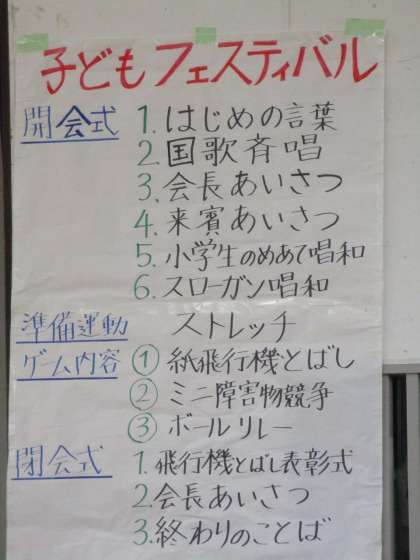 子どもフェスティバル
開会式 1. はじめの言葉
2. 国歌斉唱
3. 会長あいさつ
4. 来賓あいさつ
5. 小学生のめあて唱和
6. スローガン唱和
準備運動 ストレッチ
ゲーム内容 ① 紙飛行機とばし
② ミニ障害物競争
③ ボールリレー
閉会式 1. 飛行機とばし表彰式
2. 会長あいさつ
3. 終わりのことば